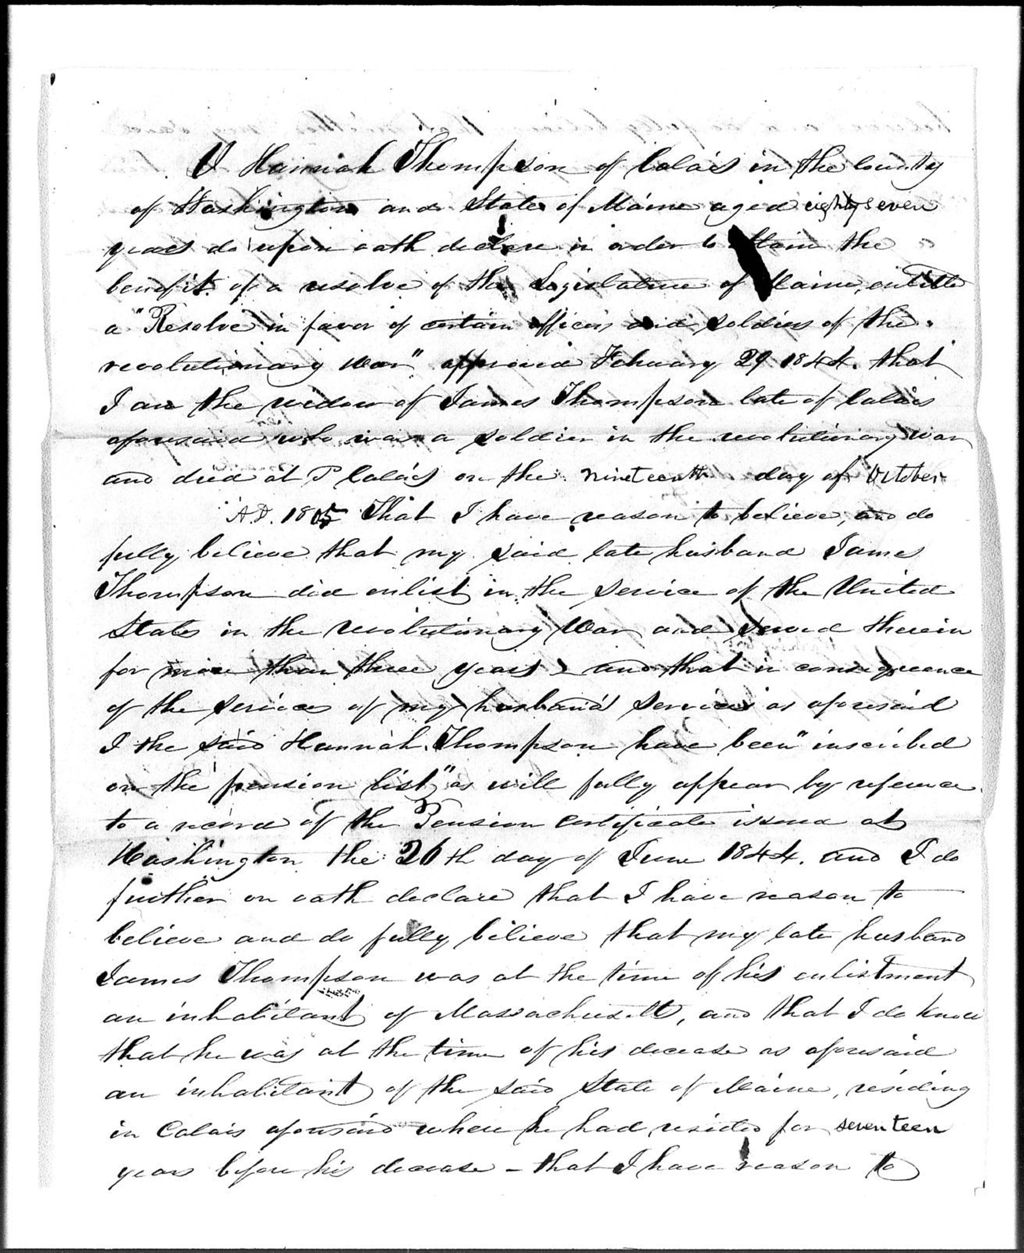 I Hannah Thompson of Calais in the County
of Washington and State of Maine aged eighty seven
years do upon oath declare in order to obtain the
benefit of a resolve of the Legislature of Maine, entitle
a "Resolve in favor of certain officers and soldiers of the
revolutionary war" approved February 29 1844. that
I am the widow of James Thompson late of Calais
aforesaid who was a soldier in the revolutionary war
and died at Calais on the nineteenth day of October
A.D. 1815 That I have reason to believe, and do
fully believe that my said late husband James
Thompson did enlist in the service of the United
States in the revolutionary War and served therein
for more than three years, and that in consequence
of the service of my husband's services as aforesaid
I the said Hannah Thompson have been "inscribed
on the pension list" as will fully appear by reference
to a record of the Pension certificate issued at
Washington the 26th day of June 1844. and I do
further on oath declare that I have reason to
believe and do fully believe that my late husband
James Thompson was at the time of his enlistment
an inhabitant of Massachusetts, and that I do know
that he was at the time of his decease as aforesaid
an inhabitant of the said State of Maine, residing
in Calais aforesaid where he had resided for seventeen
years before his decease - that I have reason to